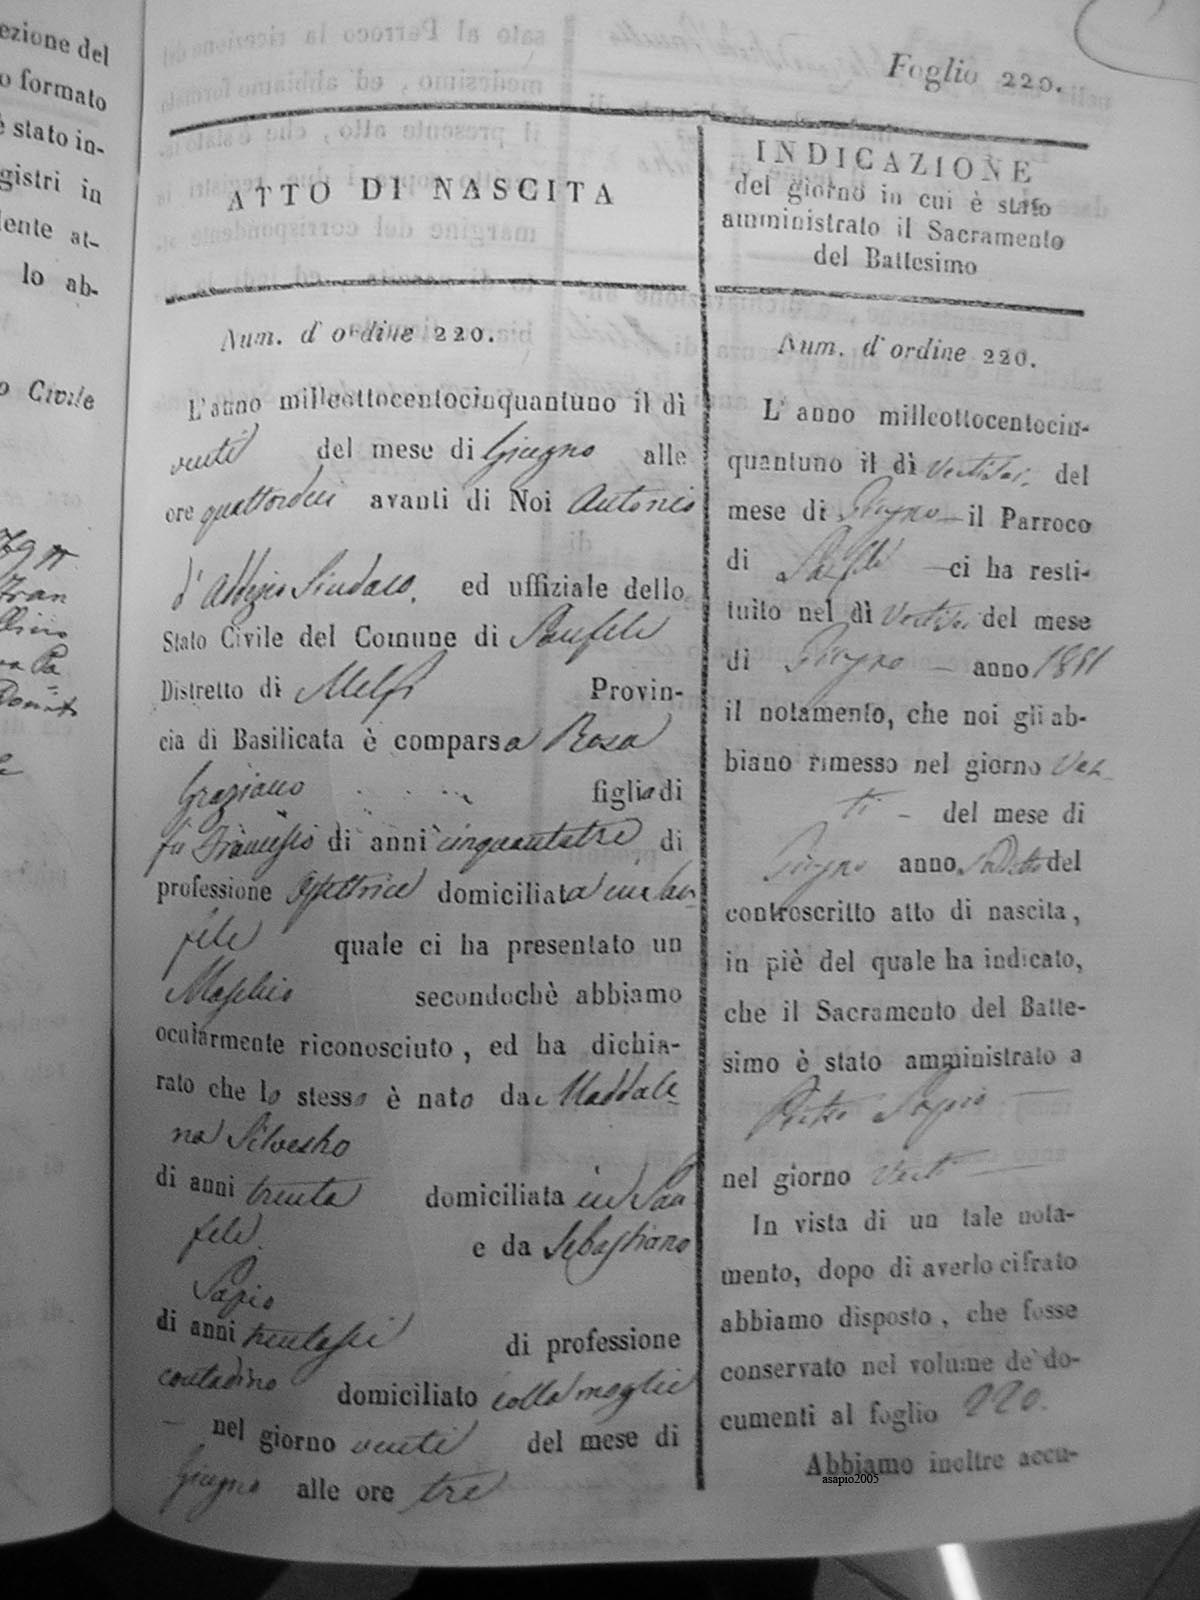 ezione del
o formato
è stato in-
gistri in
dente at-
lo ab-
o Civile
Foglio 220.
ATTO DI NASCITA
Num. d'ordine 220.
L'anno milleottocentocinquantuno il dì
venti del mese di Giugno alle
ore quattordici avanti di Noi Antonio
d'Abbizio Sindaco. ed uffiziale dello
Stato Civile del Comune di Sanfele
Distretto di Melfi Provin-
cia di Basilicata è comparsa Rosa
Graziano figlia di
fu Francesco di anni cinquantatre di
professione Ostetrice domiciliata in San
fele quale ci ha presentato un
Maschio secondochè abbiamo
ocularmente riconosciuto, ed ha dichia-
rato che lo stesso è nato da Maddale
na Silvestro
di anni trenta domiciliata in San
fele e da Sebastiano
Sapio
di anni trentasei di professione
contadino domiciliato colla moglie
nel giorno venti del mese di
Giugno alle ore tre
INDICAZIONE
del giorno in cui è stato
amministrato il Sacramento
del Battesimo
Num. d'ordine 220.
L'anno milleottocentocin-
quantuno il dì del
mese di Giugno il Parroco
di Sanfele ci ha resti-
tuito nel dì del mese
di Giugno anno 1851
il notamento, che noi gli ab-
biano rimesso nel giorno Ven
ti del mese di
Giugno anno del
controscritto atto di nascita,
in piè del quale ha indicato,
che il Sacramento del Batte-
simo è stato amministrato a
Pietro Sapio
nel giorno Venti
In vista di un tale nota-
mento, dopo di averlo cifrato
abbiamo disposto, che fosse
conservato nel volume de' do-
cumenti al foglio 220.
Abbiamo inoltre accu-
asapio2005